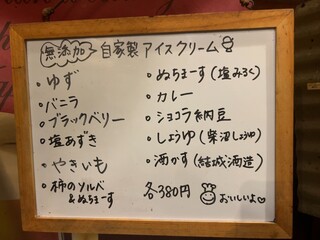 無添加 自家製アイスクリーム
・ゆず
・バニラ
・ブラックベリー
・塩あずき
・やきいも
・柿のソルベ
&ぬちまーす
・ぬちまーす(塩みるく)
・カレー
・ショコラ納豆
・しょうゆ(柴沼しょうゆ)
・酒かす(結城酒造)
各380円 おいしいよ♡